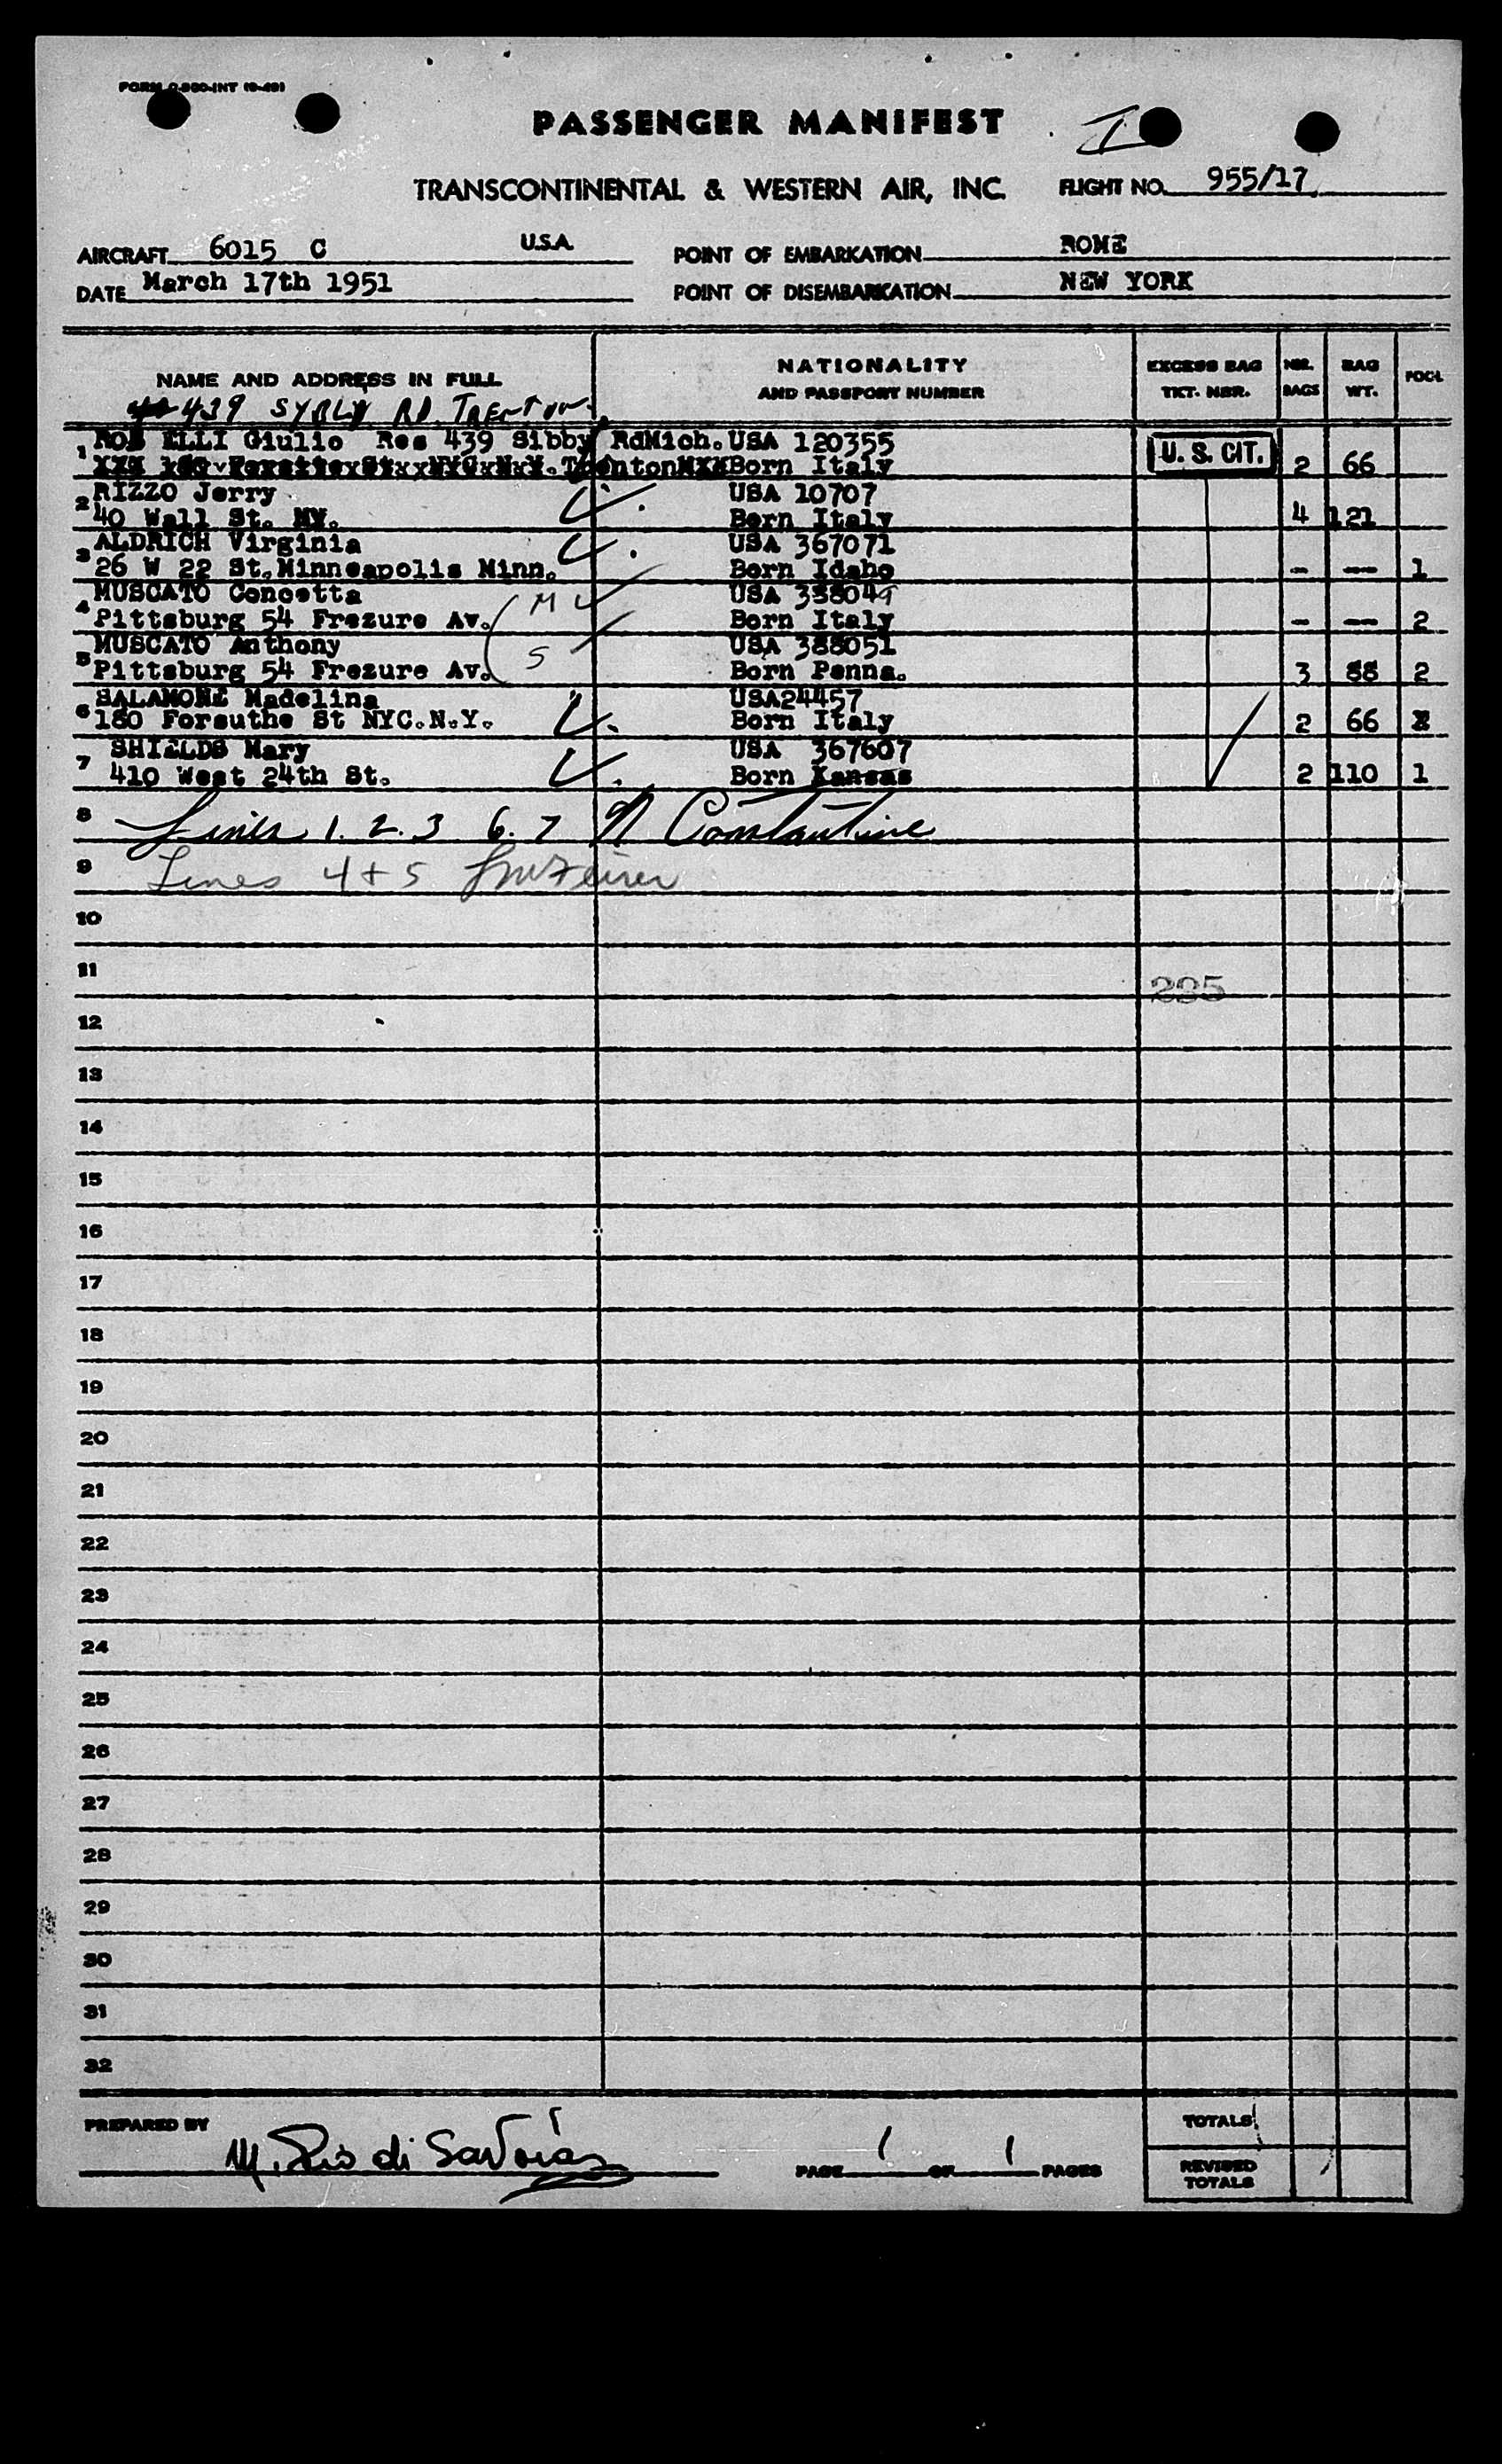 FORM O-300-INT (9-49)
PASSENGER MANIFEST
I
TRANSCONTINENTAL & WESTERN AIR, INC.
FLIGHT NO. 955/17
AIRCRAFT 6015 C U.S.A.
POINT OF EMBARKATION ROME
DATE March 17th 1951
POINT OF DISEMBARKATION NEW YORK
NAME AND ADDRESS IN FULL
NATIONALITY
AND PASSPORT NUMBER
EXCESS BAG
TKT. NBR.
NBR.
BAGS
BAG
WT.
POOL
439 RD. TRENTON
1 ELLI Giulio Res 439 Sibby RdMich. USA 120355
Born Italy U. S. CIT. 2 66
2 RIZZO Jerry USA 10707
40 Wall St. NY. Born Italy 4 121
3 ALDRICH Virginia USA 367071
26 W 22 St.Minneapolis Minn. Born Idaho - -- 1
4 MUSCATO Concetta M USA 338049
Pittsburg 54 Frezure Av. Born Italy - -- 2
5 MUSCATO Anthony S USA 388051
Pittsburg 54 Frezure Av. Born Penna. 3 88 2
6 SALAMONE Madelina USA24457
180 Forsuthe St NYC.N.Y. Born Italy 2 66
7 SHIELDS Mary USA 367607
410 West 24th St. Born Kansas 2 110 1
8 Lines 1. 2. 3 6. 7 N Constantine
9 Lines 4 + 5
10
11
285
12
13
14
15
16
17
18
19
20
21
22
23
24
25
26
27
28
29
30
31
32
PREPARED BY
M. di Savoia
PAGE 1 OF 1 PAGES
TOTALS
REVISED
TOTALS